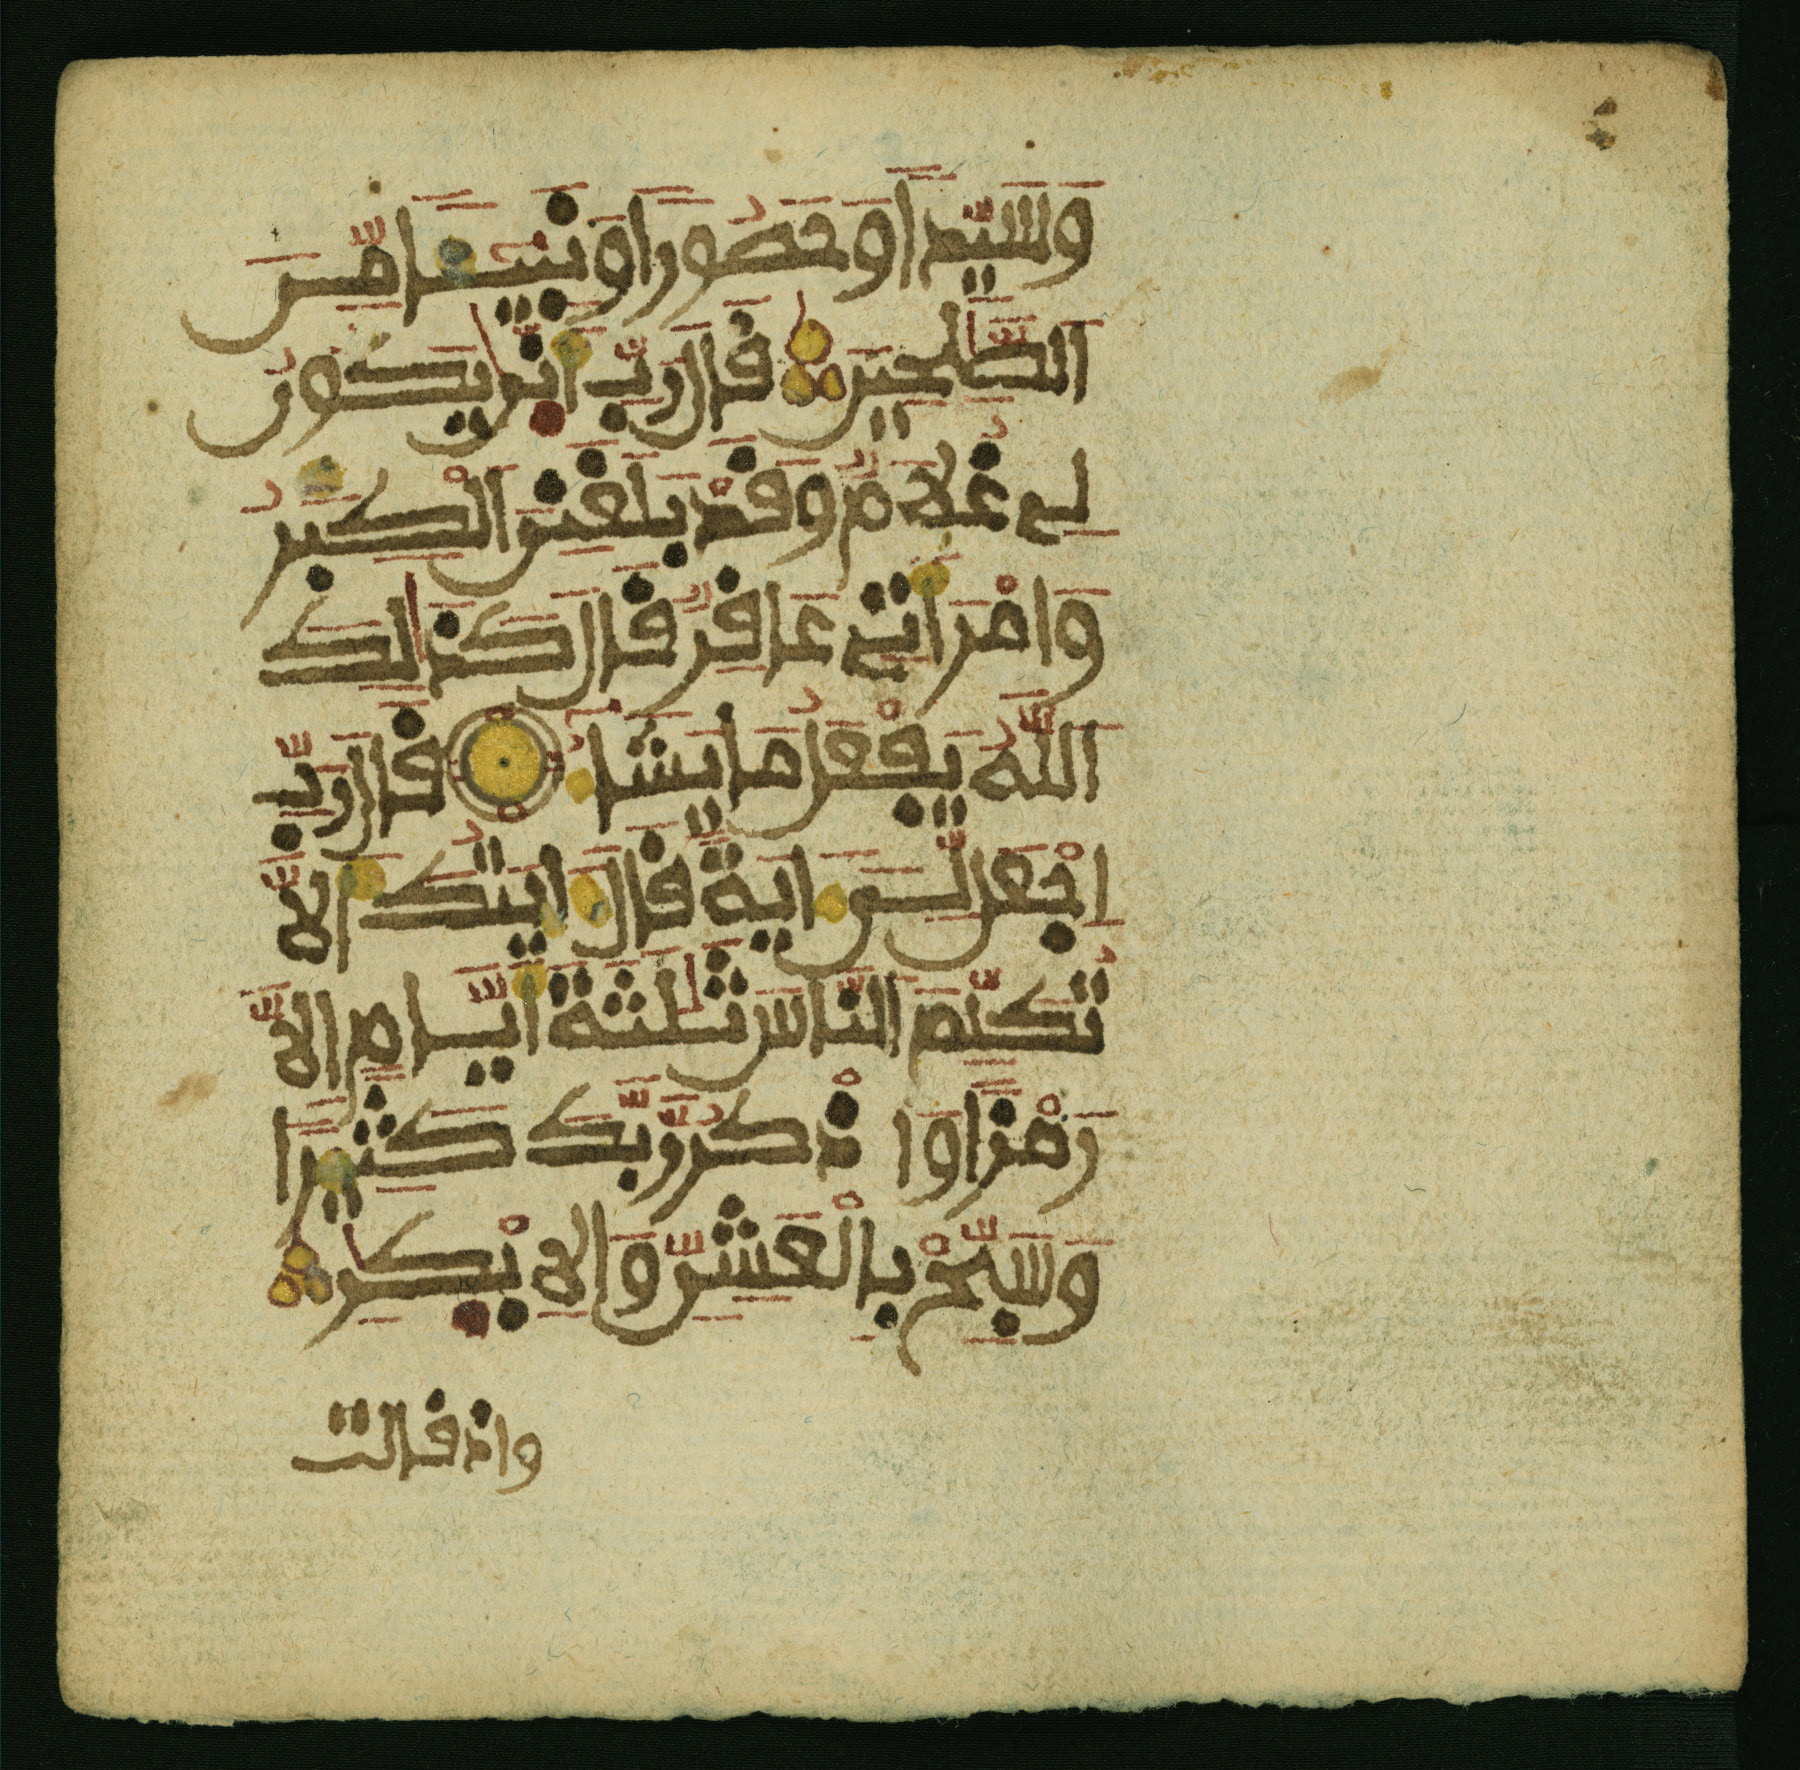 وَسَيِّدًا وَحَصُورًا وَنَبِيـًٔا مِّنَ
اَ۬لصَّٰلِحِينَۖ قَالَ رَبِّ أَنّ۪يٰ يَكُونُ
لِے غُلَٰمٌ وَقَدْ بَلَغَنِيَ اَ۬لْكِبَرُ
وَامْرَأَتِے عَاقِرٌ قَالَ كَذَٰلِكَ
اَ۬للَّهُ يَفْعَلُ مَا يَشَآءُ قَالَ رَبِّ
اِ۪جْعَل لِّيَ ءَايَةً قَالَ ءَايَتُكَ أَلَّا
تُكَلِّمَ اَ۬لنَّاسَ ثَلَٰثَةَ أَيَّامٍ اِلَّا
رَمْزًا وَا ذْكُر رَّبَّكَ كَثِيرًا
وَسَبِّحْ بِالْعَشِيِّ وَالِابْكٰ۪رِ
وإذ قالت